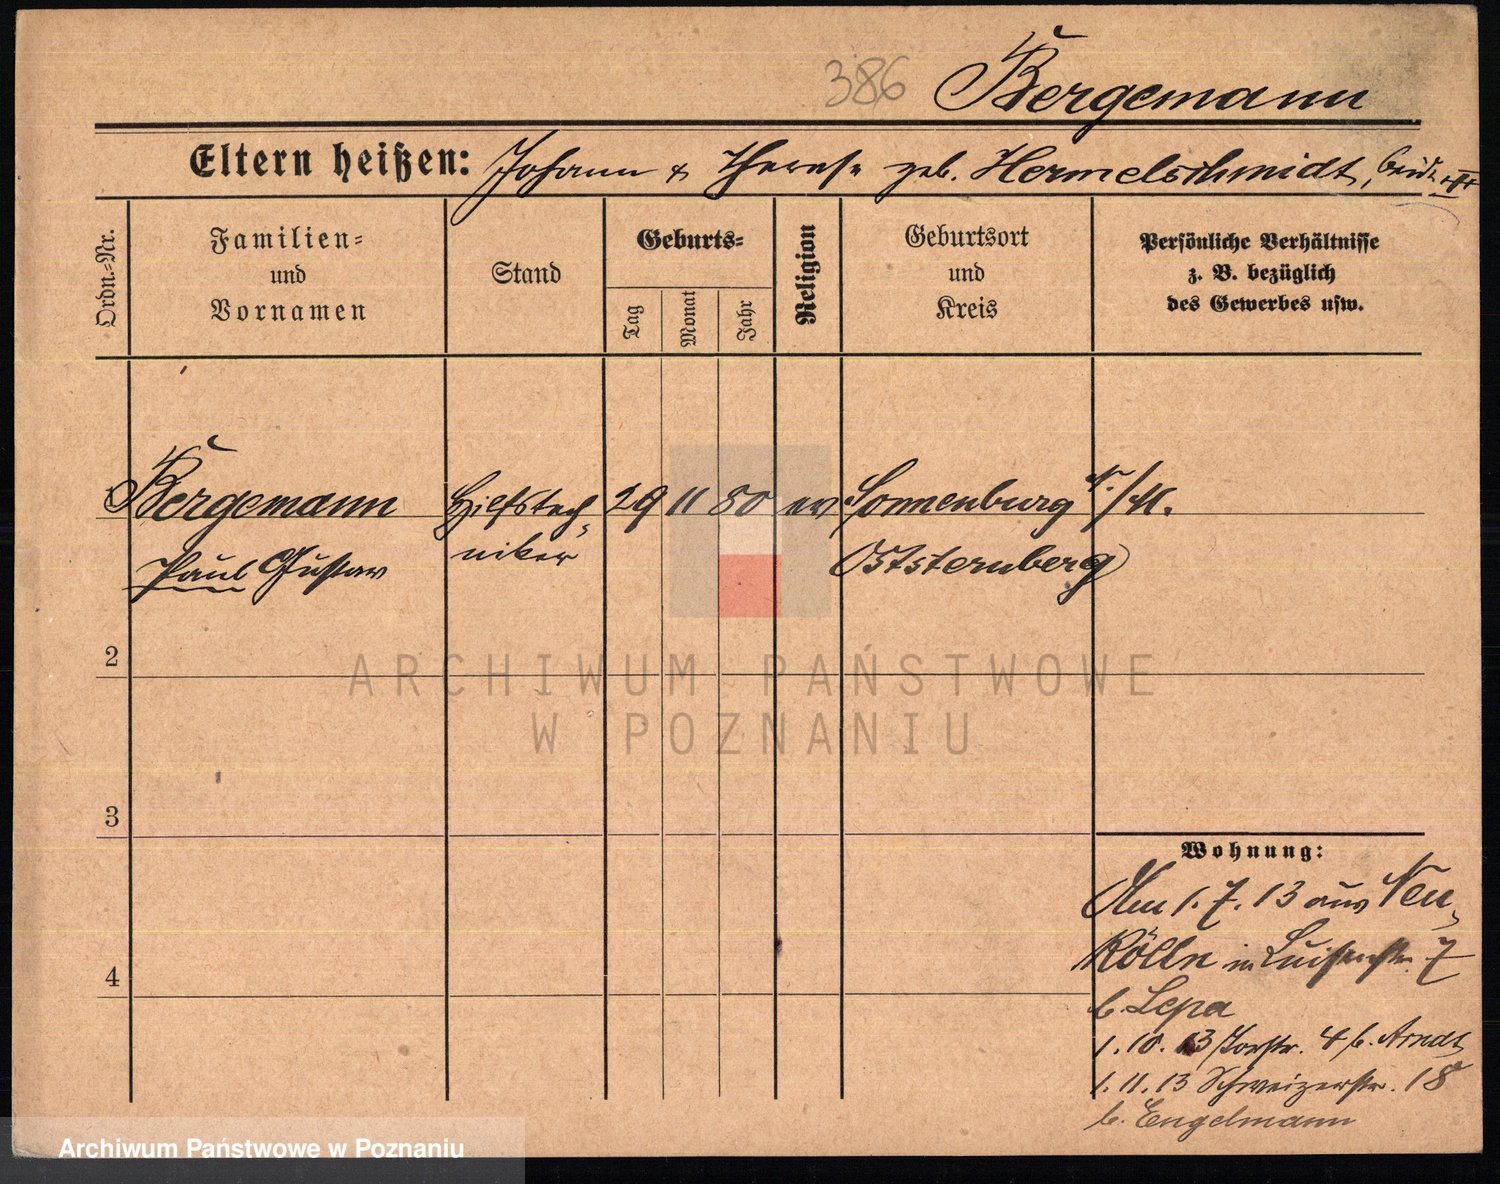 386 Bergemann
Eltern heißen: Johann & Therese geb. Hermelschmidt, beide ††
Ordn.=Nr.
Familien=
und
Vornamen
Stand
Geburts=
Tag
Monat
Jahr
Religion
Geburtsort
und
Kreis
Persönliche Verhältnisse
z. B. bezüglich
des Gewerbes usw.
1 Bergemann Hilfstech= 29 11 80 ev. Sonnenburg N./M.
Paul Gustav niker Oststernberg
2
ARCHIWUM PAŃSTWOWE
W POZNANIU
3
Wohnung:
Am 1.7.13 aus Neu=
Kölln in Luisenstr. 7
4
b. Lepa
1.10.13 4 b. Arndt
1.11.13 Schweizerstr. 18
b. Engelmann
Archiwum Państwowe w Poznaniu